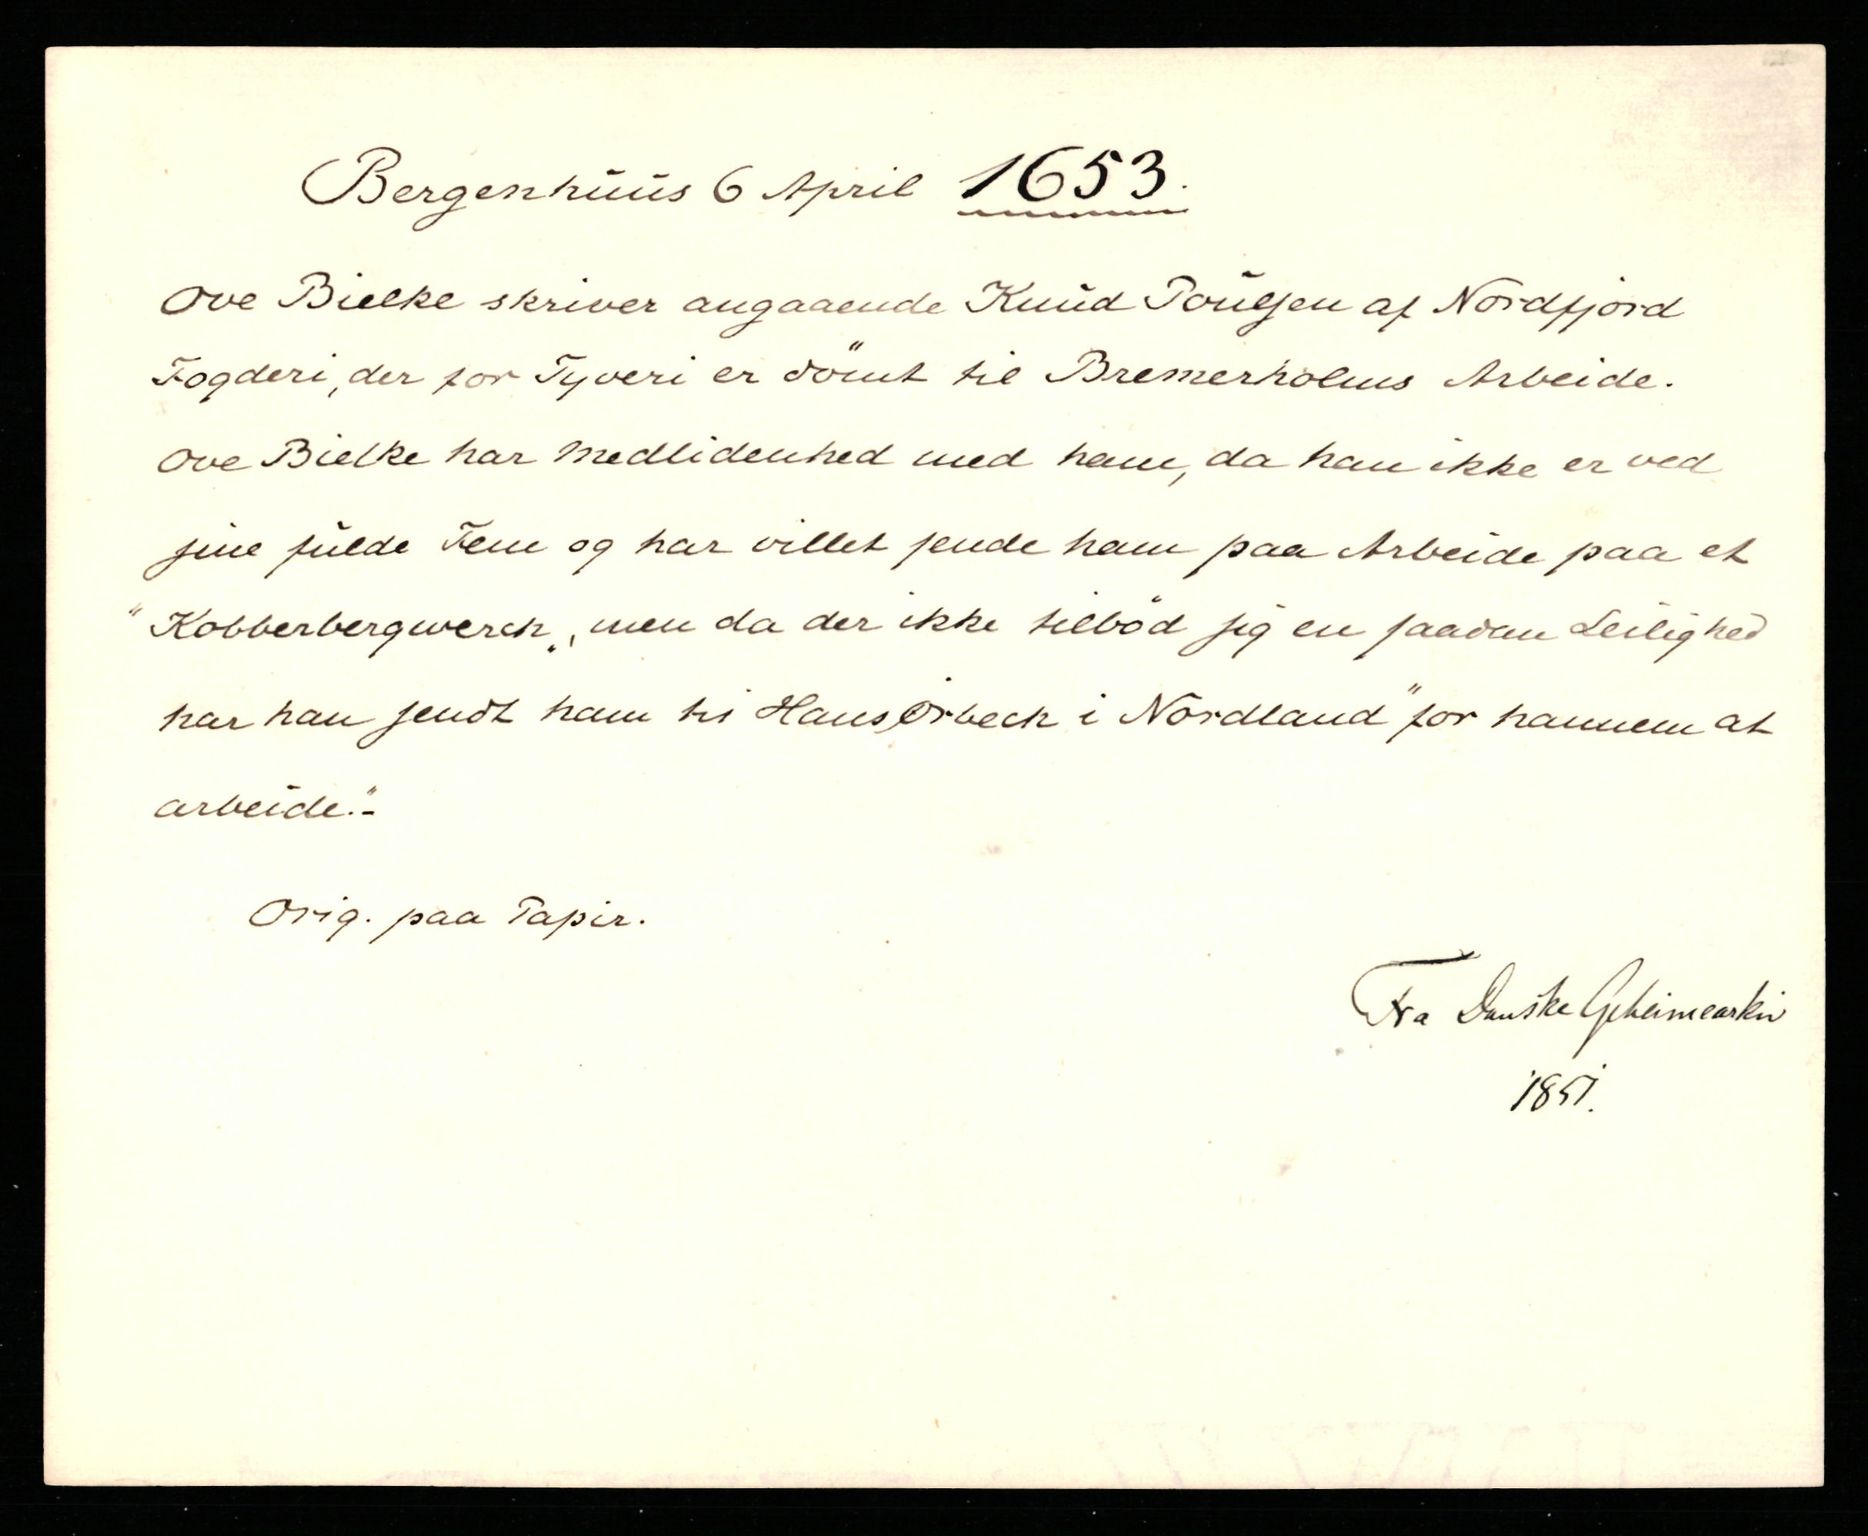 Bergenhuus 6 April 1653.
Ove Bielke skriver angaaende Knud Poulsen af Nordfjord
Fogderi, der for Tyveri er dömt til Bremerholms Arbeide.
Ove Bielke har Medlidenhed med ham, da han ikke er ved
sine fulde Fem og har villet sende ham paa Arbeide paa et
"Kobberbergwerch", men da der ikke tilbød sig en saadan Leilighed
har han sendt ham til Hans Orbech i Nordland "for hannem at
arbeide."-
Orig. paa Papir.
Fra Danske Geheimearkiv
1851.